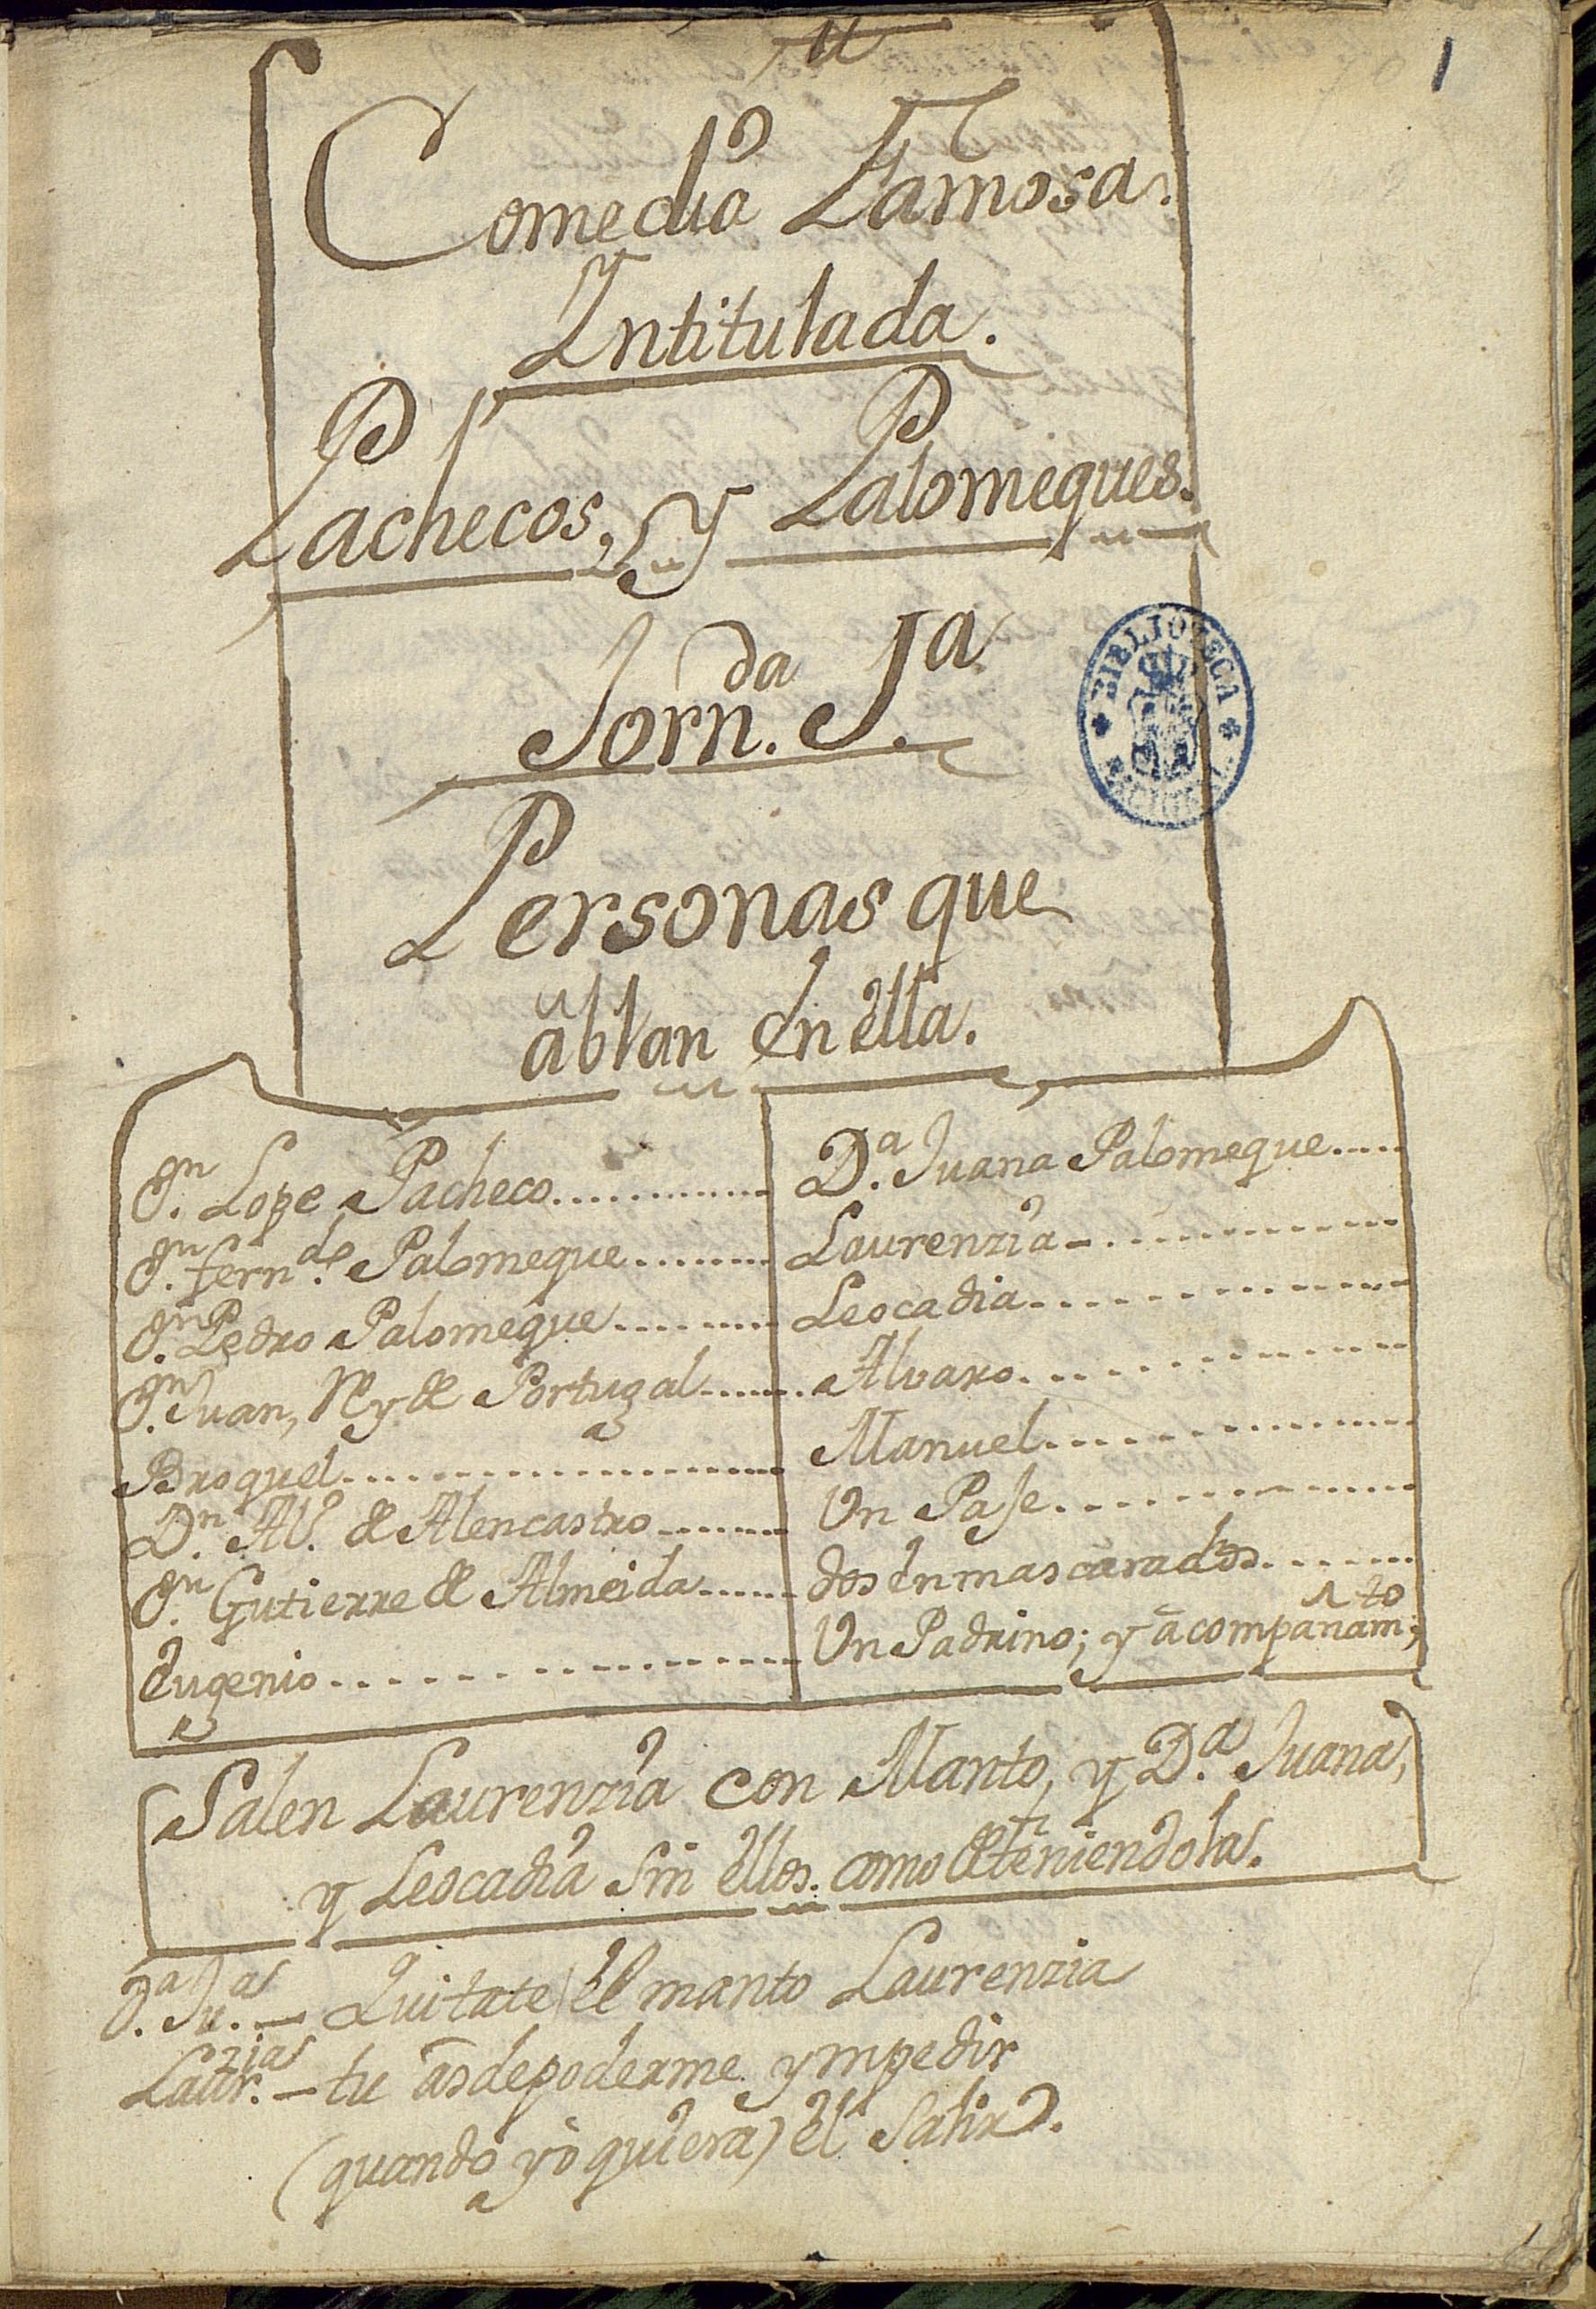 1
Comedia Famosa.
Yntitulada.
Pachecos, y Palomeques.
Jorn.da 1.a
Personas que
ablan en ella.
Dn. Lope Pacheco............
Dn. fernd.o Palomeque.......
Dn. Pedro Palomeque........
Dn. Juan, Rey de Portugal......
Broquel.....................
Dn. Al.o de Alencastro.......
Dn. Gutierre de Almeida......
Eugenio..................
D.a Juana Palomeque.....
Laurenzia............
Leocadia.............
Alvaro.............
Manuel.............
Un Paje.............
dos enmascarados.......
Un Padrino; y acompañam.to;
Salen Laurenzia con Manto, y D.a Juana,
y Leocadia sin ellos. como deteniendola.
D.a Ju.a — Quitate el manto Laurenzia
Laur.zia — tu as de poderme ympedir
(quando yo quiera) el salir?.
BIBLIOTECA NACIONAL